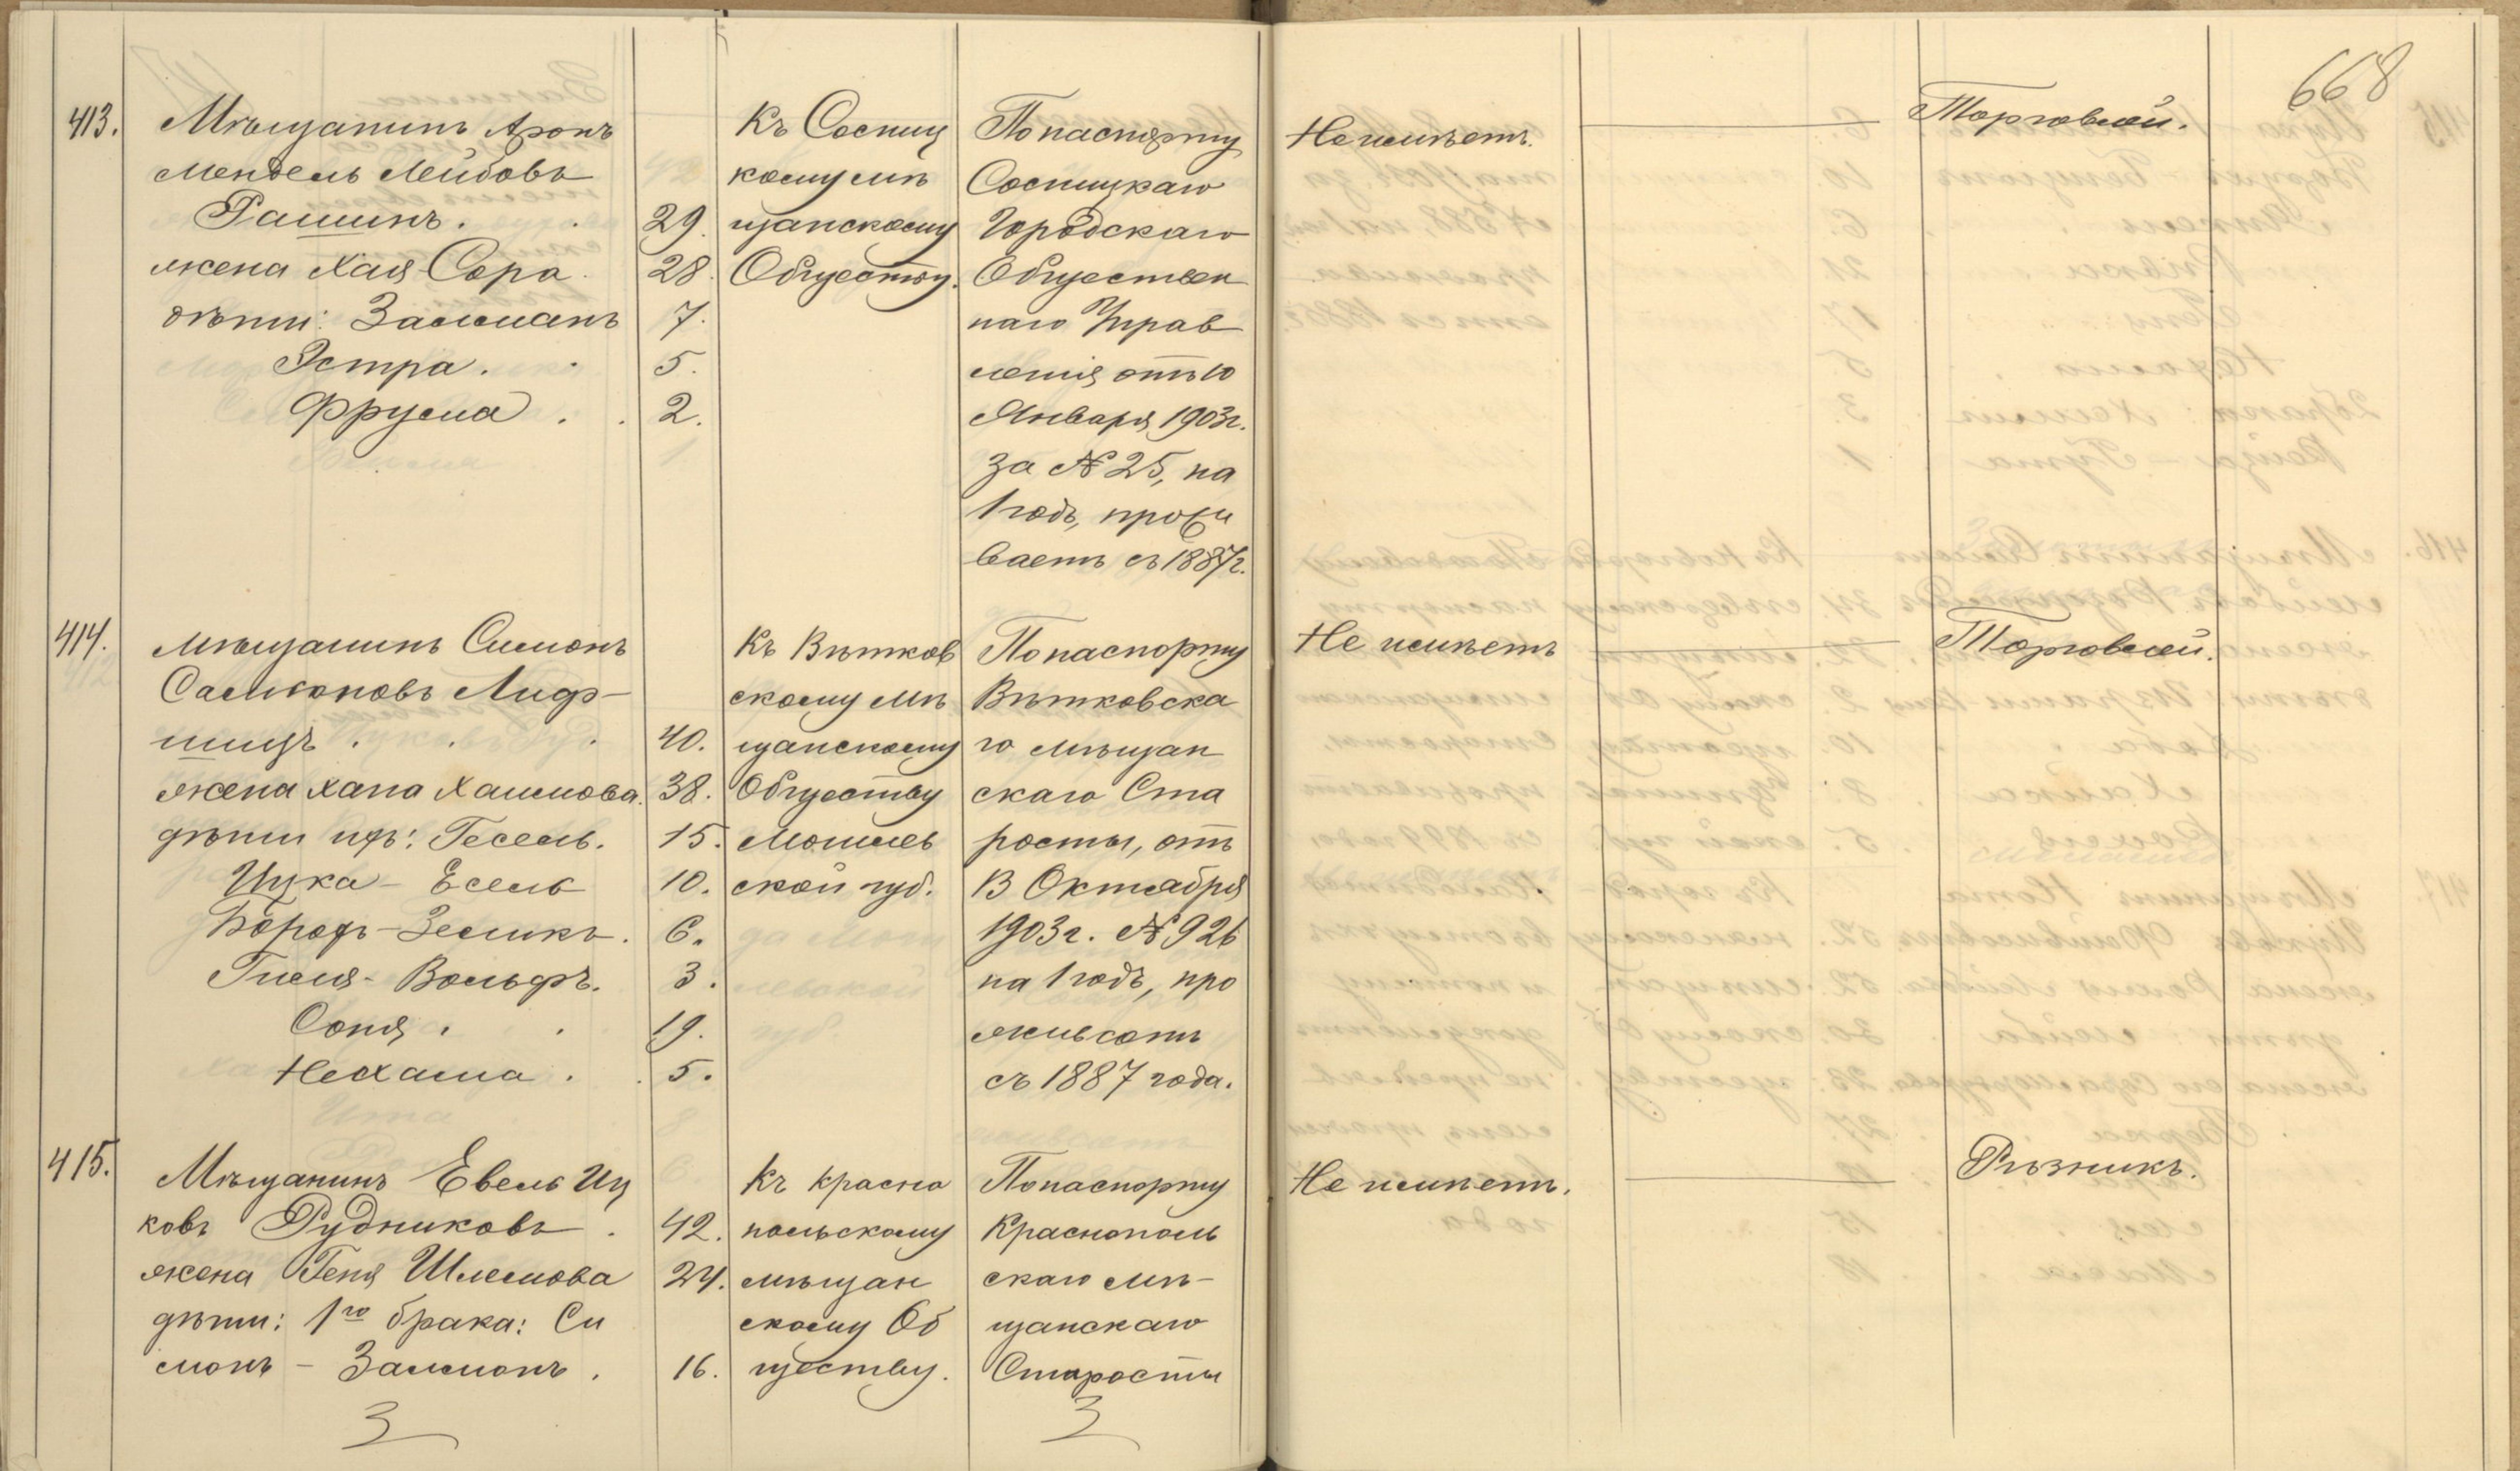 668
413.
Мѣщанинъ Аронъ
Мендель Лейбовъ
Рашинъ.
жена Хая-Сора
дѣти: Залманъ
Эстра.
Фрума
29.
28.
7.
5.
2.
Къ Сосниц
кому мѣ
щанскому
Обществу.
По паспорту
Сосницкаго
Городскаго
Обществен
наго Управ
ленія отъ 10
Января 1903 г.
за № 25, на
1 годъ, прожи
ваетъ съ 1887 г.
Не имѣетъ.
Торговлей.
414.
Мѣщанинъ Симонъ
Саломоновъ Лиф-
шицъ
жена Хана Хаимова.
дѣти ихъ: Гесель.
Ицка-Есель
Борохъ-Зеликъ.
Гиля-Вольфъ.
Соня.
Нехама.
40.
38.
15.
10.
6.
3.
19.
5.
Къ Вѣтков
скому мѣ
щанскому
Обществу
Могилев
ской губ.
По паспорту
Вѣтковска
го мѣщан
скаго Ста
росты, отъ
13 Октября
1903 г. № 926
на 1 годъ, про
живаютъ
съ 1887 года.
Не имѣетъ
Торговлей.
415.
Мѣщанинъ Евель Иц
ковъ Рудниковъ
жена Геня Шлемова
дѣти: 1го брака: Си
монъ - Залмонъ.
3
42.
24.
16.
Къ Красно
польскому
мѣщан
скому Об
ществу.
По паспорту
Краснополь
скаго мѣ-
щанскаго
Старосты
3
Не имѣетъ.
Рѣзникъ.